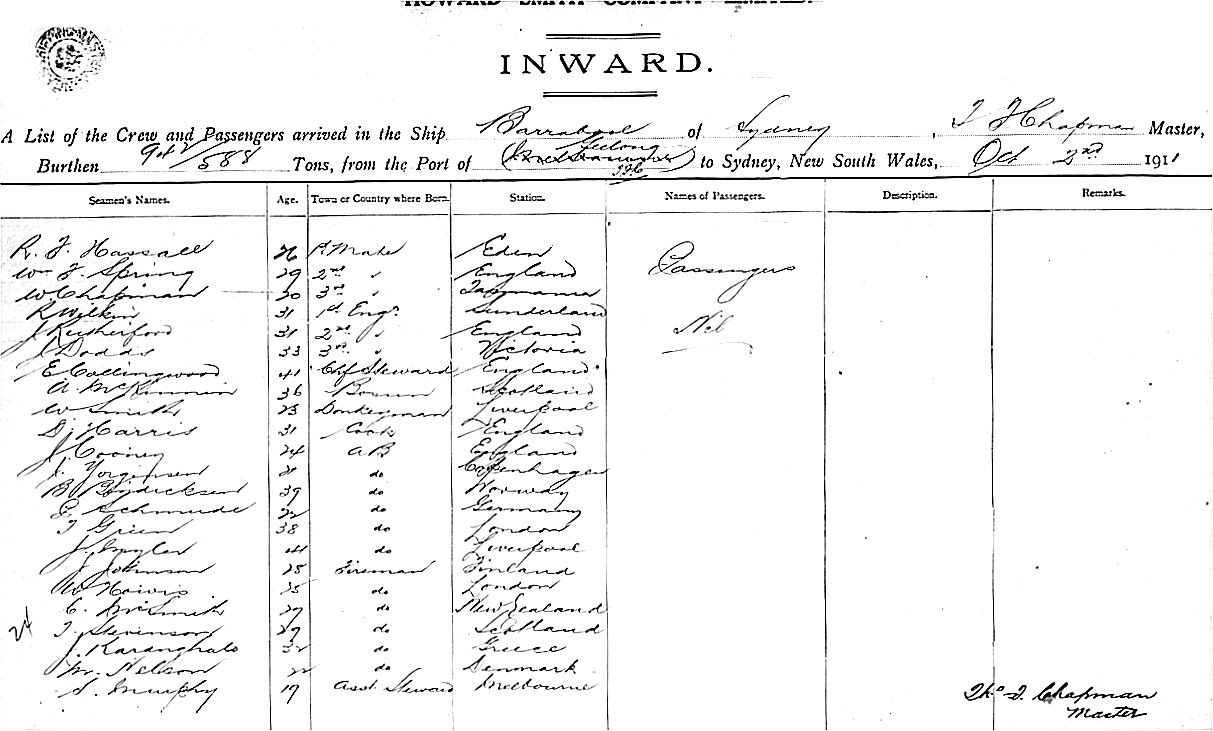 HOWARD SMITH COMPANY LIMITED.
INWARD.
A List of the Crew and Passengers arrived in the Ship Barrabool of Sydney, T F Chapman Master,
Burthen 942/588 Tons, from the Port of Geelong to Sydney, New South Wales, Oct 2nd 1911
Seamen's Names. Age. Town or Country where Born. Station. Names of Passengers. Description. Remarks.
R. F. Hassall 26 Mate Eden
Wm F. Spring 29 2nd " England Passengers
W. Chapman 20 3rd " Tasmania
R Wilkin 31 1st Engr Sunderland
J Rutherford 31 2nd " England Nil
J Dodds 33 3rd " Victoria
E Collingwood 41 Chf Steward England
A McKinnin 36 Bosun Scotland
W Smith 23 Donkeyman Liverpool
D. Harris 31 Cook England
J Cooney 24 AB England
J. Yorginsen 21 do Copenhagen
B. 39 do Norway
G Schmude 22 do Germany
T Green 38 do London
J. 41 do Liverpool
J Johnson 28 Fireman Finland
W 25 do London
C. McSmith 27 do New Zealand
24
T. Stevenson 29 do Scotland
J. Karanghals 32 do Greece
M. Nelson 22 do Denmark
S. Murphy 19 Asst Steward Melbourne
Thos F. Chapman
Master